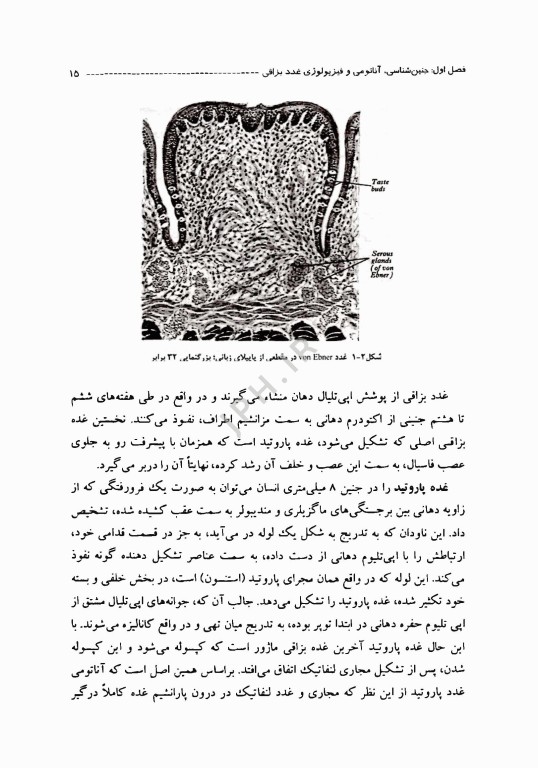 فصل اول: جنین‌شناسی، آناتومی و فیزیولوژی غدد بزاقی -------------------------------------- ۱۵
Taste
buds
Serous
glands
(of von
Ebner)
شکل۲-۱ غدد von Ebner در مقطعی از پاپیلای زبانی؛ بزرگنمایی ۳۲ برابر
JPH.IR
غدد بزاقی از پوشش اپی‌تلیال دهان منشاء می‌گیرند و در واقع در طی هفته‌های ششم
تا هشتم جنینی از اکتودرم دهانی به سمت مزانشیم اطراف، نفوذ می‌کنند. نخستین غده
بزاقی اصلی که تشکیل می‌شود، غده پاروتید است که همزمان با پیشرفت رو به جلوی
عصب فاسیال، به سمت این عصب و خلف آن رشد کرده، نهایتاً آن را دربر می‌گیرد.
غده پاروتید را در جنین ۸ میلی‌متری انسان می‌توان به صورت یک فرورفتگی که از
زاویه دهانی بین برجستگی‌های ماگزیلری و مندیبولر به سمت عقب کشیده شده، تشخیص
داد. این ناودان که به تدریج به شکل یک لوله در می‌آید، به جز در قسمت قدامی خود،
ارتباطش را با اپی‌تلیوم دهانی از دست داده، به سمت عناصر تشکیل دهنده گونه نفوذ
می‌کند. این لوله که در واقع همان مجرای پاروتید (استنسون) است، در بخش خلفی و بسته
خود تکثیر شده، غده پاروتید را تشکیل می‌دهد. جالب آن که، جوانه‌های اپی‌تلیال مشتق از
اپی تلیوم حفره دهانی در ابتدا توپر بوده، به تدریج میان تهی و در واقع کانالیزه می‌شوند. با
این حال غده پاروتید آخرین غده بزاقی ماژور است که کپسوله می‌شود و این کپسوله
شدن، پس از تشکیل مجاری لنفاتیک اتفاق می‌افتد. براساس همین اصل است که آناتومی
غدد پاروتید از این نظر که مجاری و غدد لنفاتیک در درون پارانشیم غده کاملاً درگیر